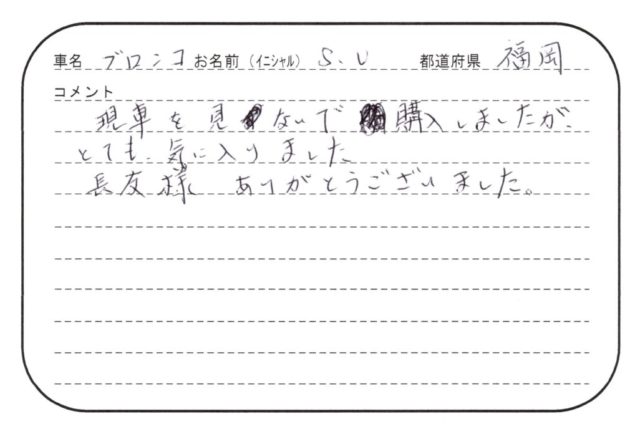 車名 ブロンコ お名前（ｲﾆｼｬﾙ） S.U 都道府県 福岡
コメント
現車を見ないで購入しましたが、
とても気に入りました
長友様 ありがとうございました。